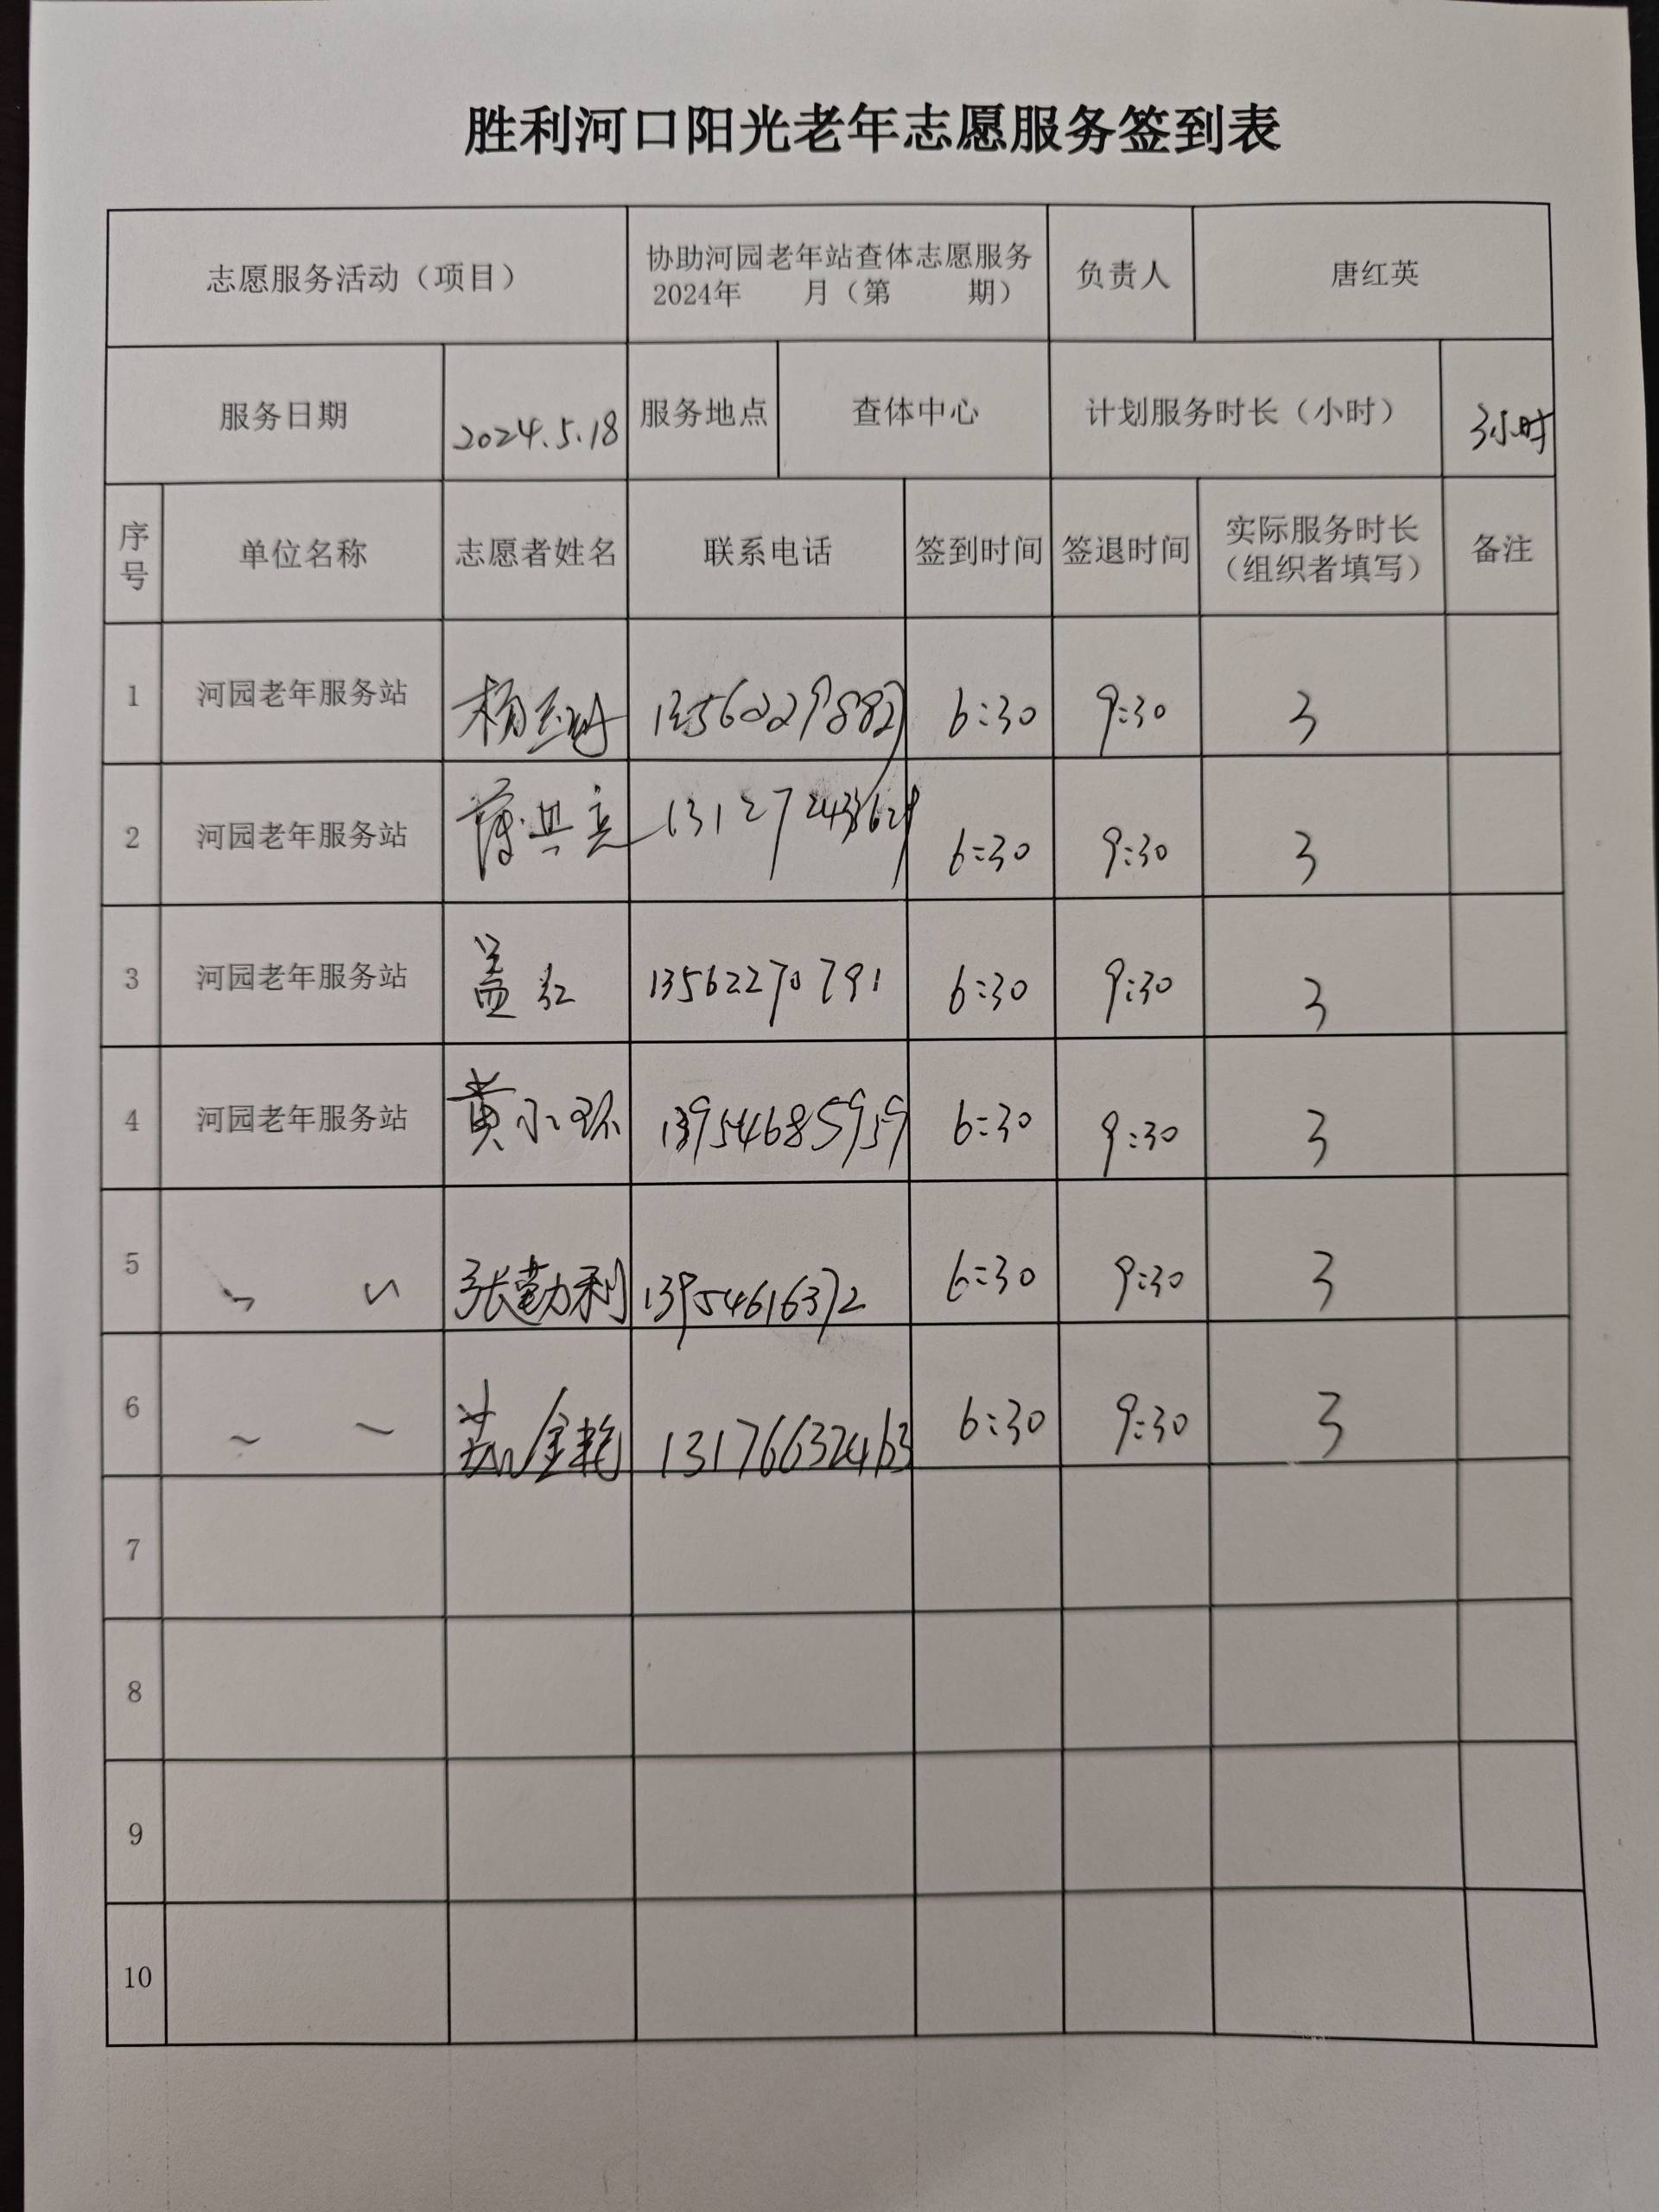 胜利河口阳光老年志愿服务签到表
志愿服务活动（项目） 协助河园老年站查体志愿服务 2024年 月（第 期） 负责人 唐红英
服务日期 2024.5.18 服务地点 查体中心 计划服务时长（小时） 3小时
序号 单位名称 志愿者姓名 联系电话 签到时间 签退时间 实际服务时长（组织者填写） 备注
1 河园老年服务站 6:30 9:30 3
2 河园老年服务站 6:30 9:30 3
3 河园老年服务站 盖红 13562270791 6:30 9:30 3
4 河园老年服务站 黄小环 13954685959 6:30 9:30 3
5 张勤利 13954616372 6:30 9:30 3
6 13176632463 6:30 9:30 3
7
8
9
10